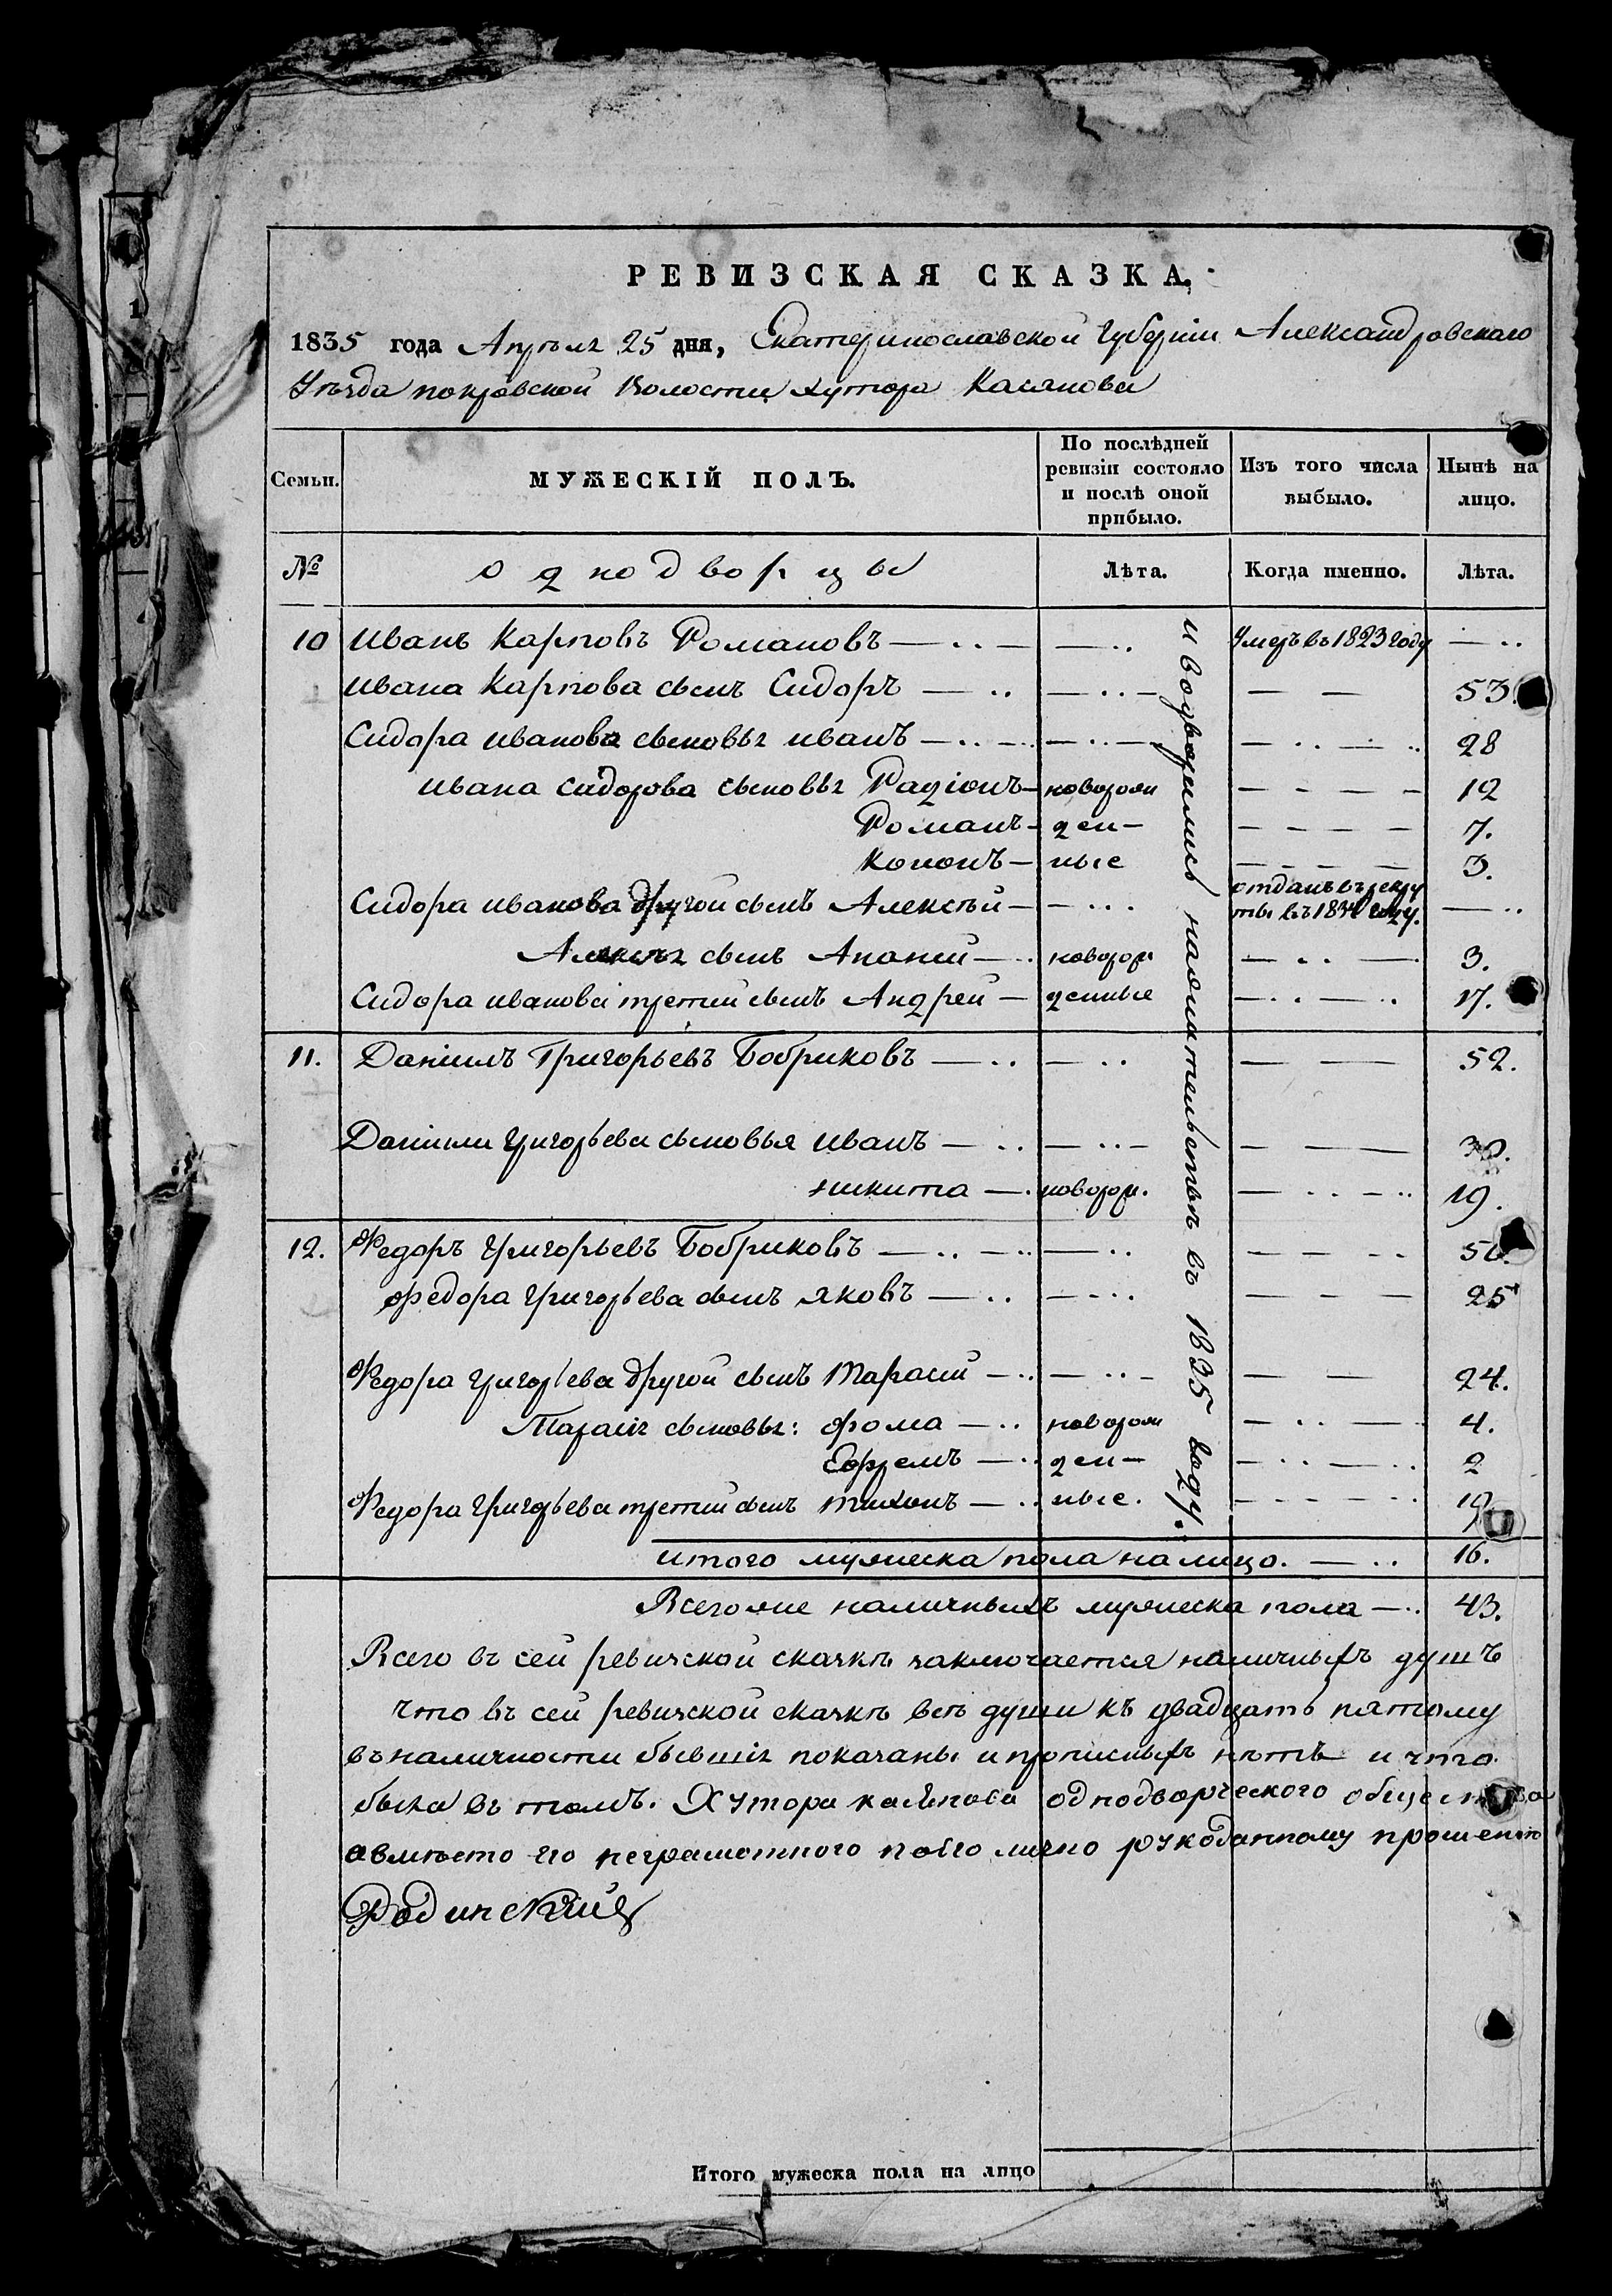 РЕВИЗСКАЯ СКАЗКА.
1835 года Апреля 25 дня, Екатеринославской Губернiи Александровскаго
Уѣзда покровской Волости хутора Касянова
Семьи.
МУЖЕСКIЙ ПОЛЪ.
По послѣдней ревизiи состояло и послѣ оной прибыло.
Изъ того числа выбыло.
Нынѣ на лицо.
№
однодворцы
Лѣта.
Когда именно.
Лѣта.
10 Иванъ Карповъ Романовъ — .. — — .. Умеръ въ 1823 году — ..
Ивана Карпова сынъ Сидоръ — .. — .. — — — 53.
Сидора иванова сыновья иванъ — .. — .. — .. — .. — .. 28
ивана сидорова сыновья Радiонъ — новорож — - - - 12
Романъ — ден — — - - - 7.
Кононъ — ные — - - - 3.
Сидора иванова другой сынъ Алексѣй — — ... отданъ въ рекру
ты въ 1834 году. — ..
Алексѣя сынъ Ананiй — .. новорож — .. — 3.
Сидора иванова третiй сынъ Андрей — денные — .. — .. 17.
11. Данiилъ Григорьевъ Бобриковъ — .. — .. — — 52.
Данiила Григорьева сыновья иванъ — .. — .. — — — 30.
никита — . новорож. — .. — .. 19.
12. Федоръ Григорьевъ Бобриковъ — .. — .. — .. — — - - 50.
Федора Григорьева сынъ яковъ — .. — ... — — — 25
Федора Григорьева другой сынъ Тарасiй — .. — .. — — — 24.
Тарасiя сыновья: фома — .. новорож — .. — 4.
Ефремъ — . ден — — .. — .. 2
Федора Григорьева третiй сынъ тихонъ — .. ные. — - - - 19
и водворились на жительствѣ въ 1835 году.
итого мужеска пола на лицо. — .. 16.
Всего же наличныхъ мужеска пола — .. 43.
Всего въ сей ревизской сказкѣ заключается наличныхъ душъ
что въ сей ревизской сказкѣ всѣ души къ двадцать пятому
въ наличности бывшiя показаны и прописныхъ нѣтъ и что
быка въ томъ. Хутора касянова однодворческого общества
авместо его неграмотного поего лично рукоданному прошенiю
Родинскiй
Итого мужеска пола на лицо